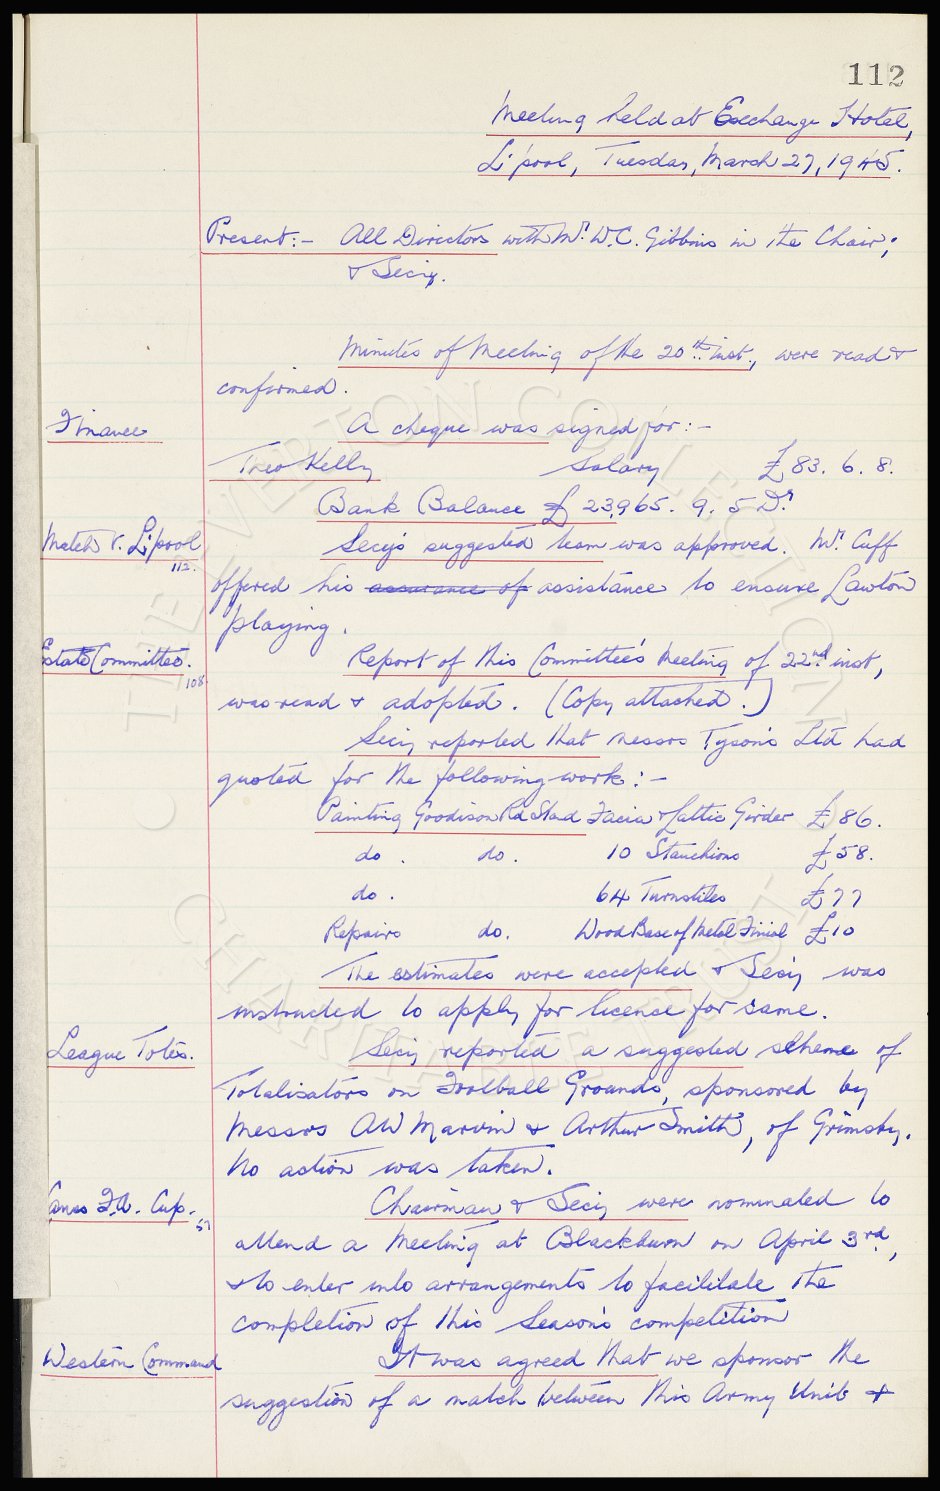 112
Meeting held at Exchange Hotel,
L'pool, Tuesday, March 27, 1945.
Present:- All Directors with Mr. W.C. Gibbins in the Chair,
& Secy.
Minutes of Meeting of the 20th inst., were read &
confirmed.
Finance A cheque was signed for:-
Theo Kelly Salary £83. 6. 8.
Bank Balance £23,965. 9. 5 Dr.
Match v. L'pool 112. Secy's suggested team was approved. Mr. Cuff
offered his assurance of assistance to ensure Lawton
playing.
Estate Committee. 108 Report of this Committee's Meeting of 22nd inst,
was read & adopted. (Copy attached.)
Secy reported that Messrs Tyson's Ltd had
quoted for the following work:-
Painting Goodison Rd Stand Facia & Lattic Girder £86.
do. do. 10 Stanchions £58.
do. 64 Turnstiles £77
Repairs do. Wood Base of Metal Finial £10
The estimates were accepted & Secy was
instructed to apply for licence for same.
League Totes. Secy reported a suggested scheme of
Totalisators on Football Grounds, sponsored by
Messrs AW Marvin & Arthur Smith, of Grimsby.
No action was taken.
Lancs F.A. Cup. 57 Chairman & Secy were nominated to
attend a Meeting at Blackburn on April 3rd,
& to enter into arrangements to facilitate the
completion of this Season's competition
Western Command It was agreed that we sponsor the
suggestion of a match between this Army Unit &
THE EVERTON COLLECTION
CHARITABLE TRUST